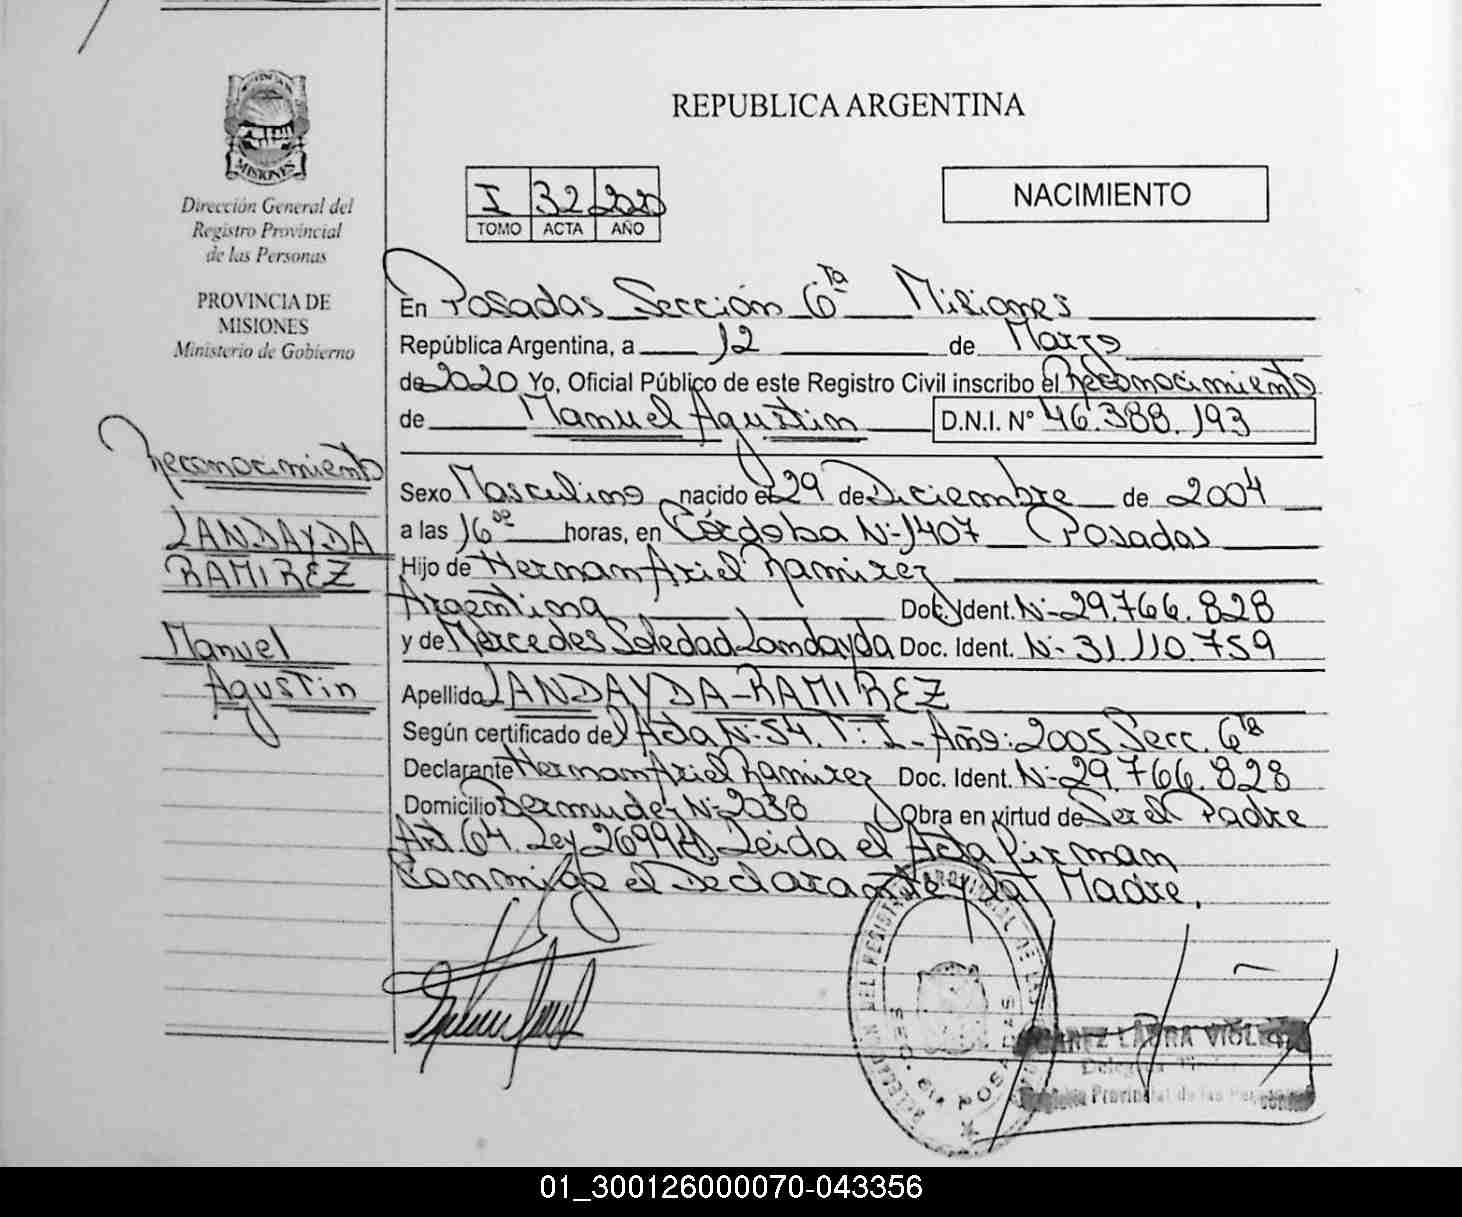 REPUBLICA ARGENTINA
MISIONES
Dirección General del
Registro Provincial
de las Personas
PROVINCIA DE
MISIONES
Ministerio de Gobierno
I 32 2020
TOMO ACTA AÑO
NACIMIENTO
En Posadas Sección 6ta Misiones
República Argentina, a 12 de Marzo
de 2020 Yo, Oficial Público de este Registro Civil inscribo el Reconocimiento
de Manuel Agustin D.N.I. Nº 46.388.193
Reconocimiento
LANDAYDA
RAMIREZ
Manuel
Agustin
Sexo Masculino nacido el 29 de Diciembre de 2004
a las 16 horas, en Córdoba Nº 1407 Posadas
Hijo de Hernan Ariel Ramirez
Argentina Doc. Ident. Nº 29.766.828
y de Mercedes Soledad Landayda Doc. Ident. Nº 31.110.759
Apellido LANDAYDA-RAMIREZ
Según certificado del Acta Nº 54. T: I - Año: 2005 Secc. 6ta
Declarante Hernan Ariel Ramirez Doc. Ident. Nº 29.766.828
Domicilio Bermudez Nº 2038 Obra en virtud de Ser el Padre
Art. 64. Ley 26994 Leida el Acta Firman
Conmigo el Declarante y la Madre.
POSADAS
LAURA
Provincial de las
01_300126000070-043356